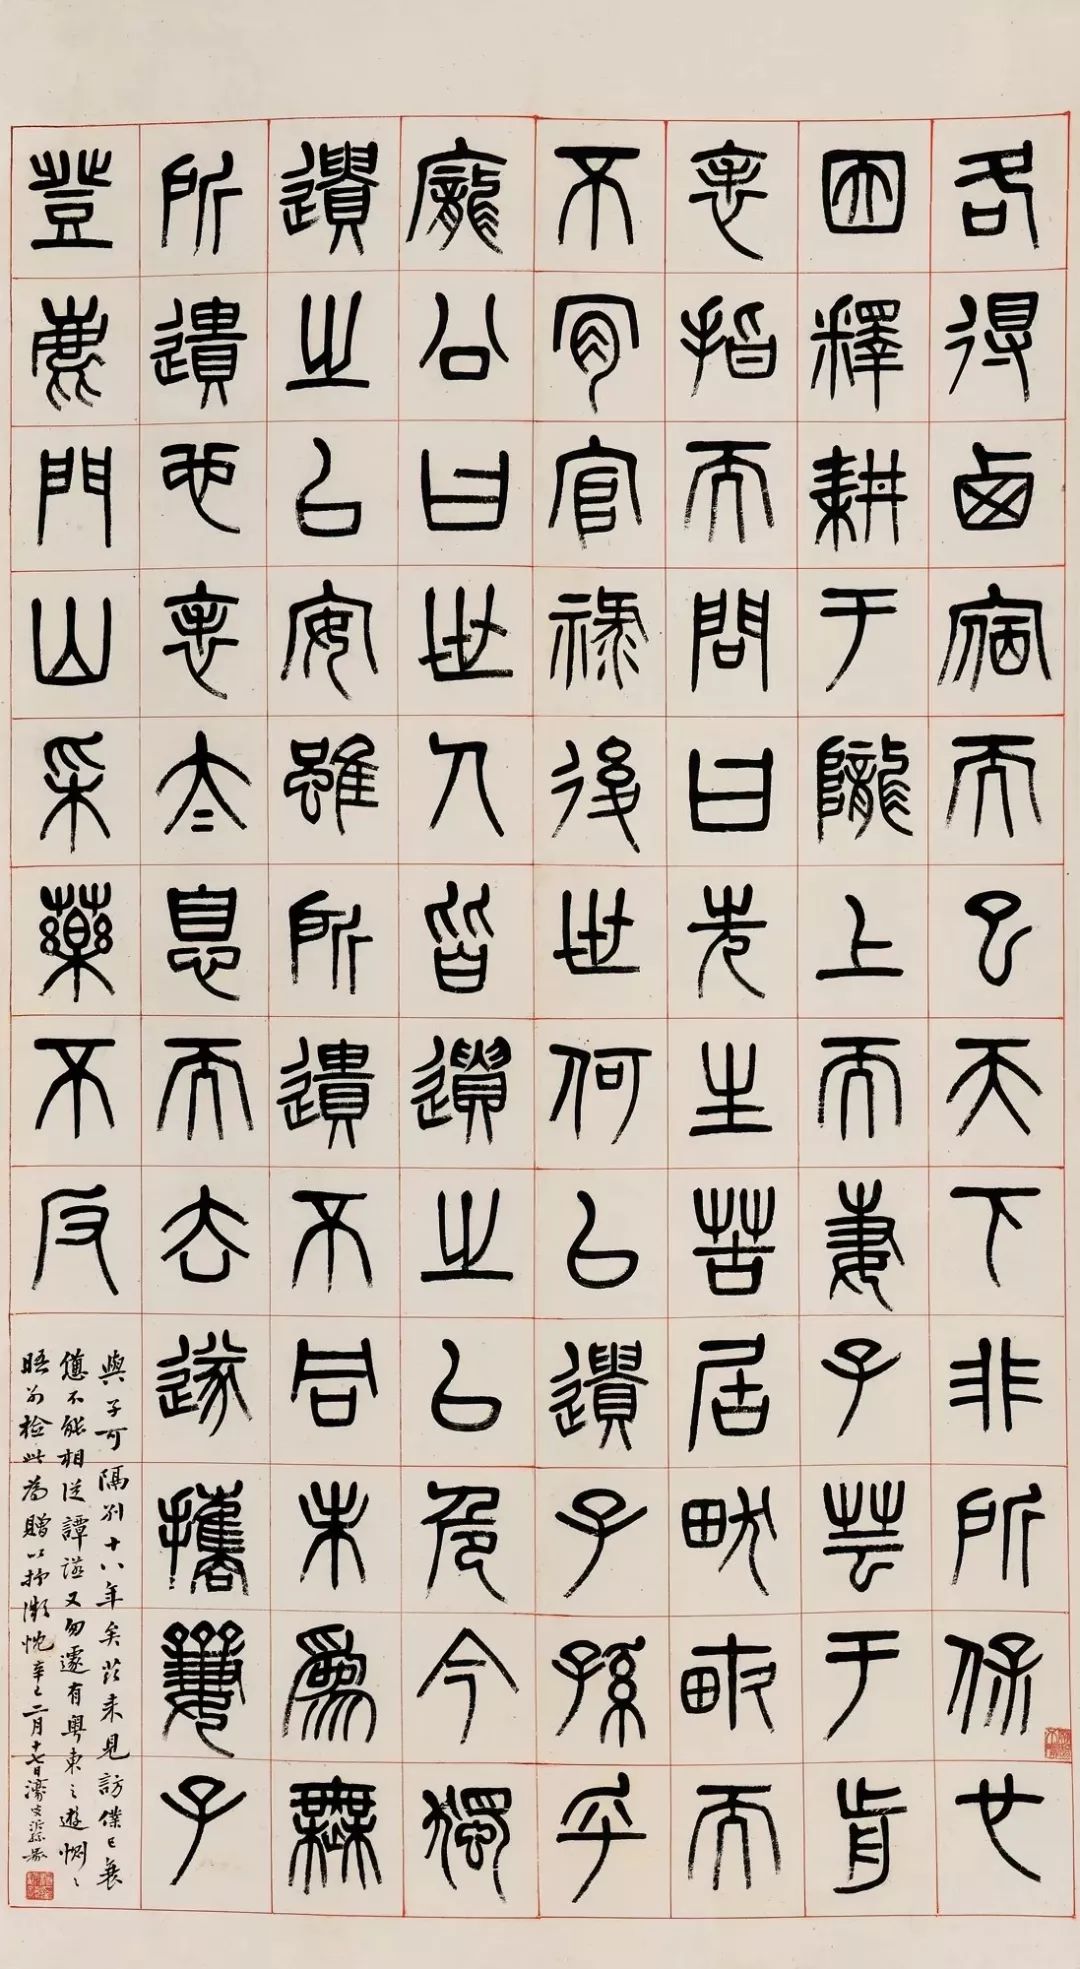 各得西宿而已天下非所保也
因釋耕于隴上而妻子芸于前
表指而問曰先生苦居畎畝而
不肯官祿後世何以遺子孫乎
龐公曰世人皆遺之以危今獨
遺之以安雖所遺不同未為無
所遺也表太息而去遂攜妻子
登鹿門山采藥不反
與子可隔別十八年矣茲來見訪僕已衰
憊不能相從譚又匆遽有粵東之遊惘惘
晤前檢此為贈以抒微忱辛巳二月十七日濠叟沂孫